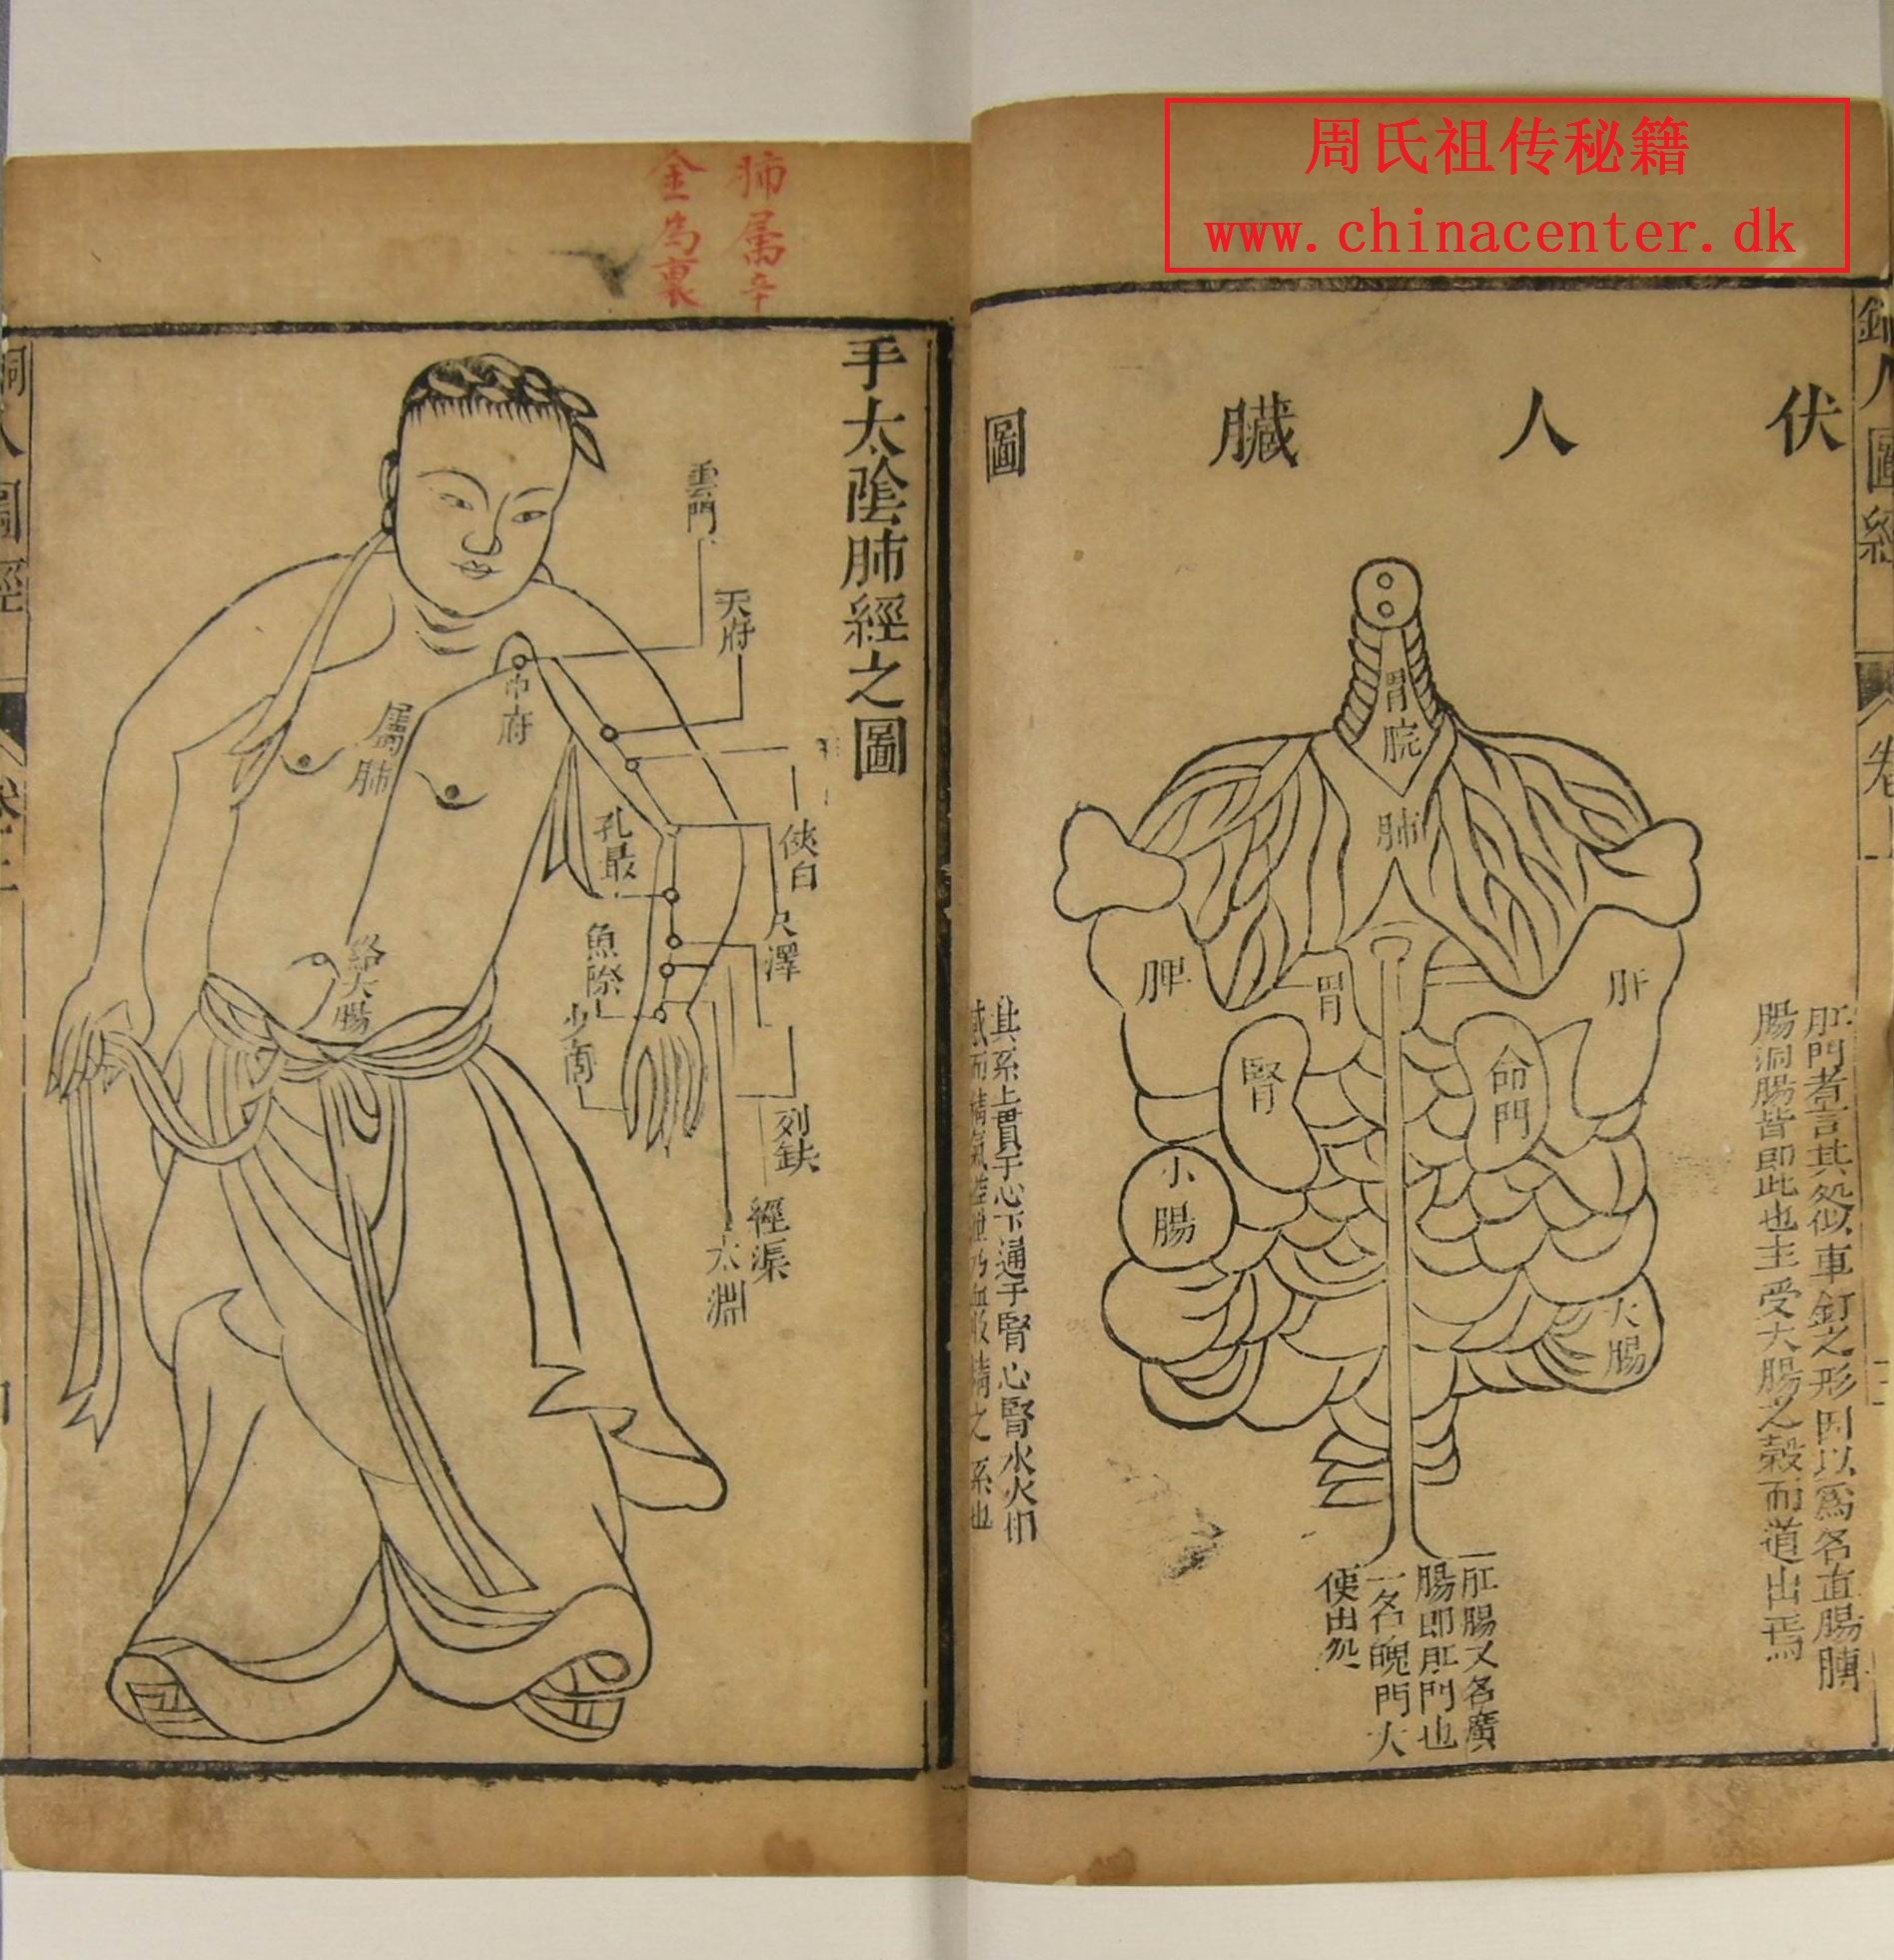 周氏祖传秘籍
www.chinacenter.dk
伏人臟圖
胃脘
肺
脾
胃
肝
腎
命門
小腸
大腸
肛門者言其処似車釭之形因以爲名直腸䏝
腸洞腸皆即此也主受大腸之穀而道出焉
肛腸又名廣
腸即肛門也
一名魄門大
便出処
其系上貫于心下通于腎心腎水火相
肺屬辛
金為裏
手太陰肺經之圖
雲門
天府
中府
屬肺
俠白
孔最
尺澤
魚際
少商
絡大腸
列缺
經渠
太淵